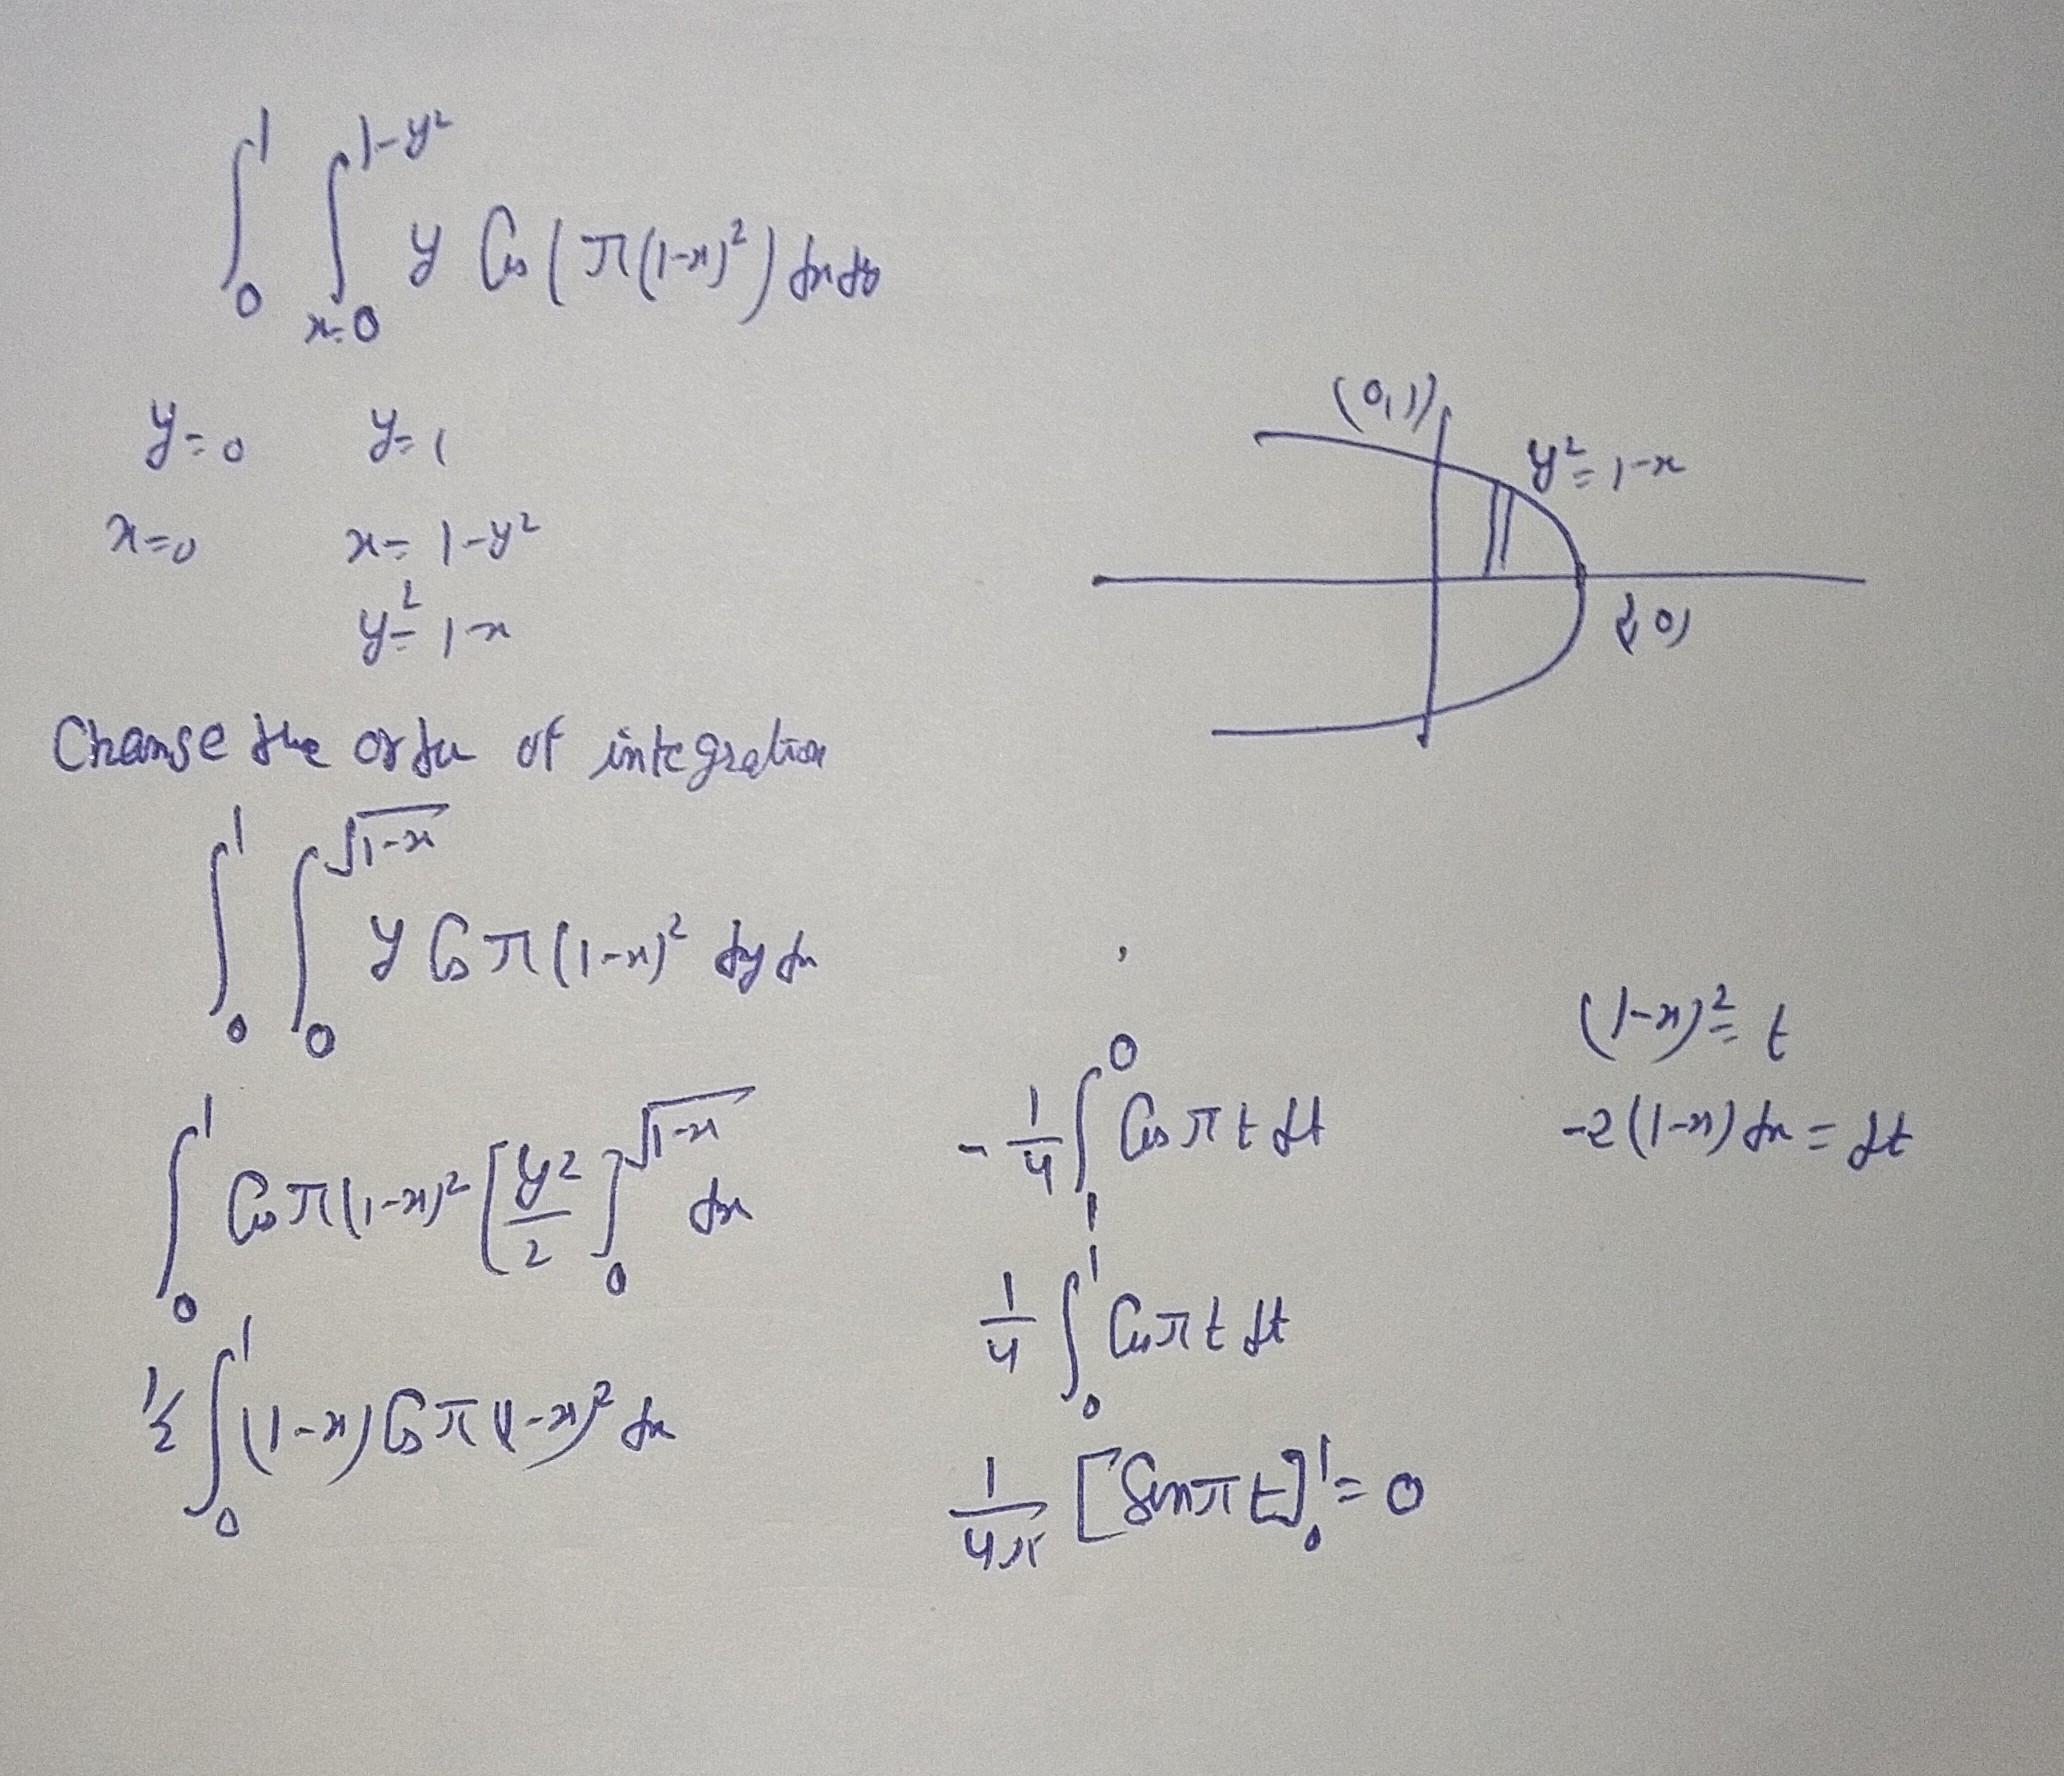 ∫₀¹ ∫ₓ₌₀^{1-y²} y Cos(π(1-x)²) dx dy
y=0 y=1
x=0 x=1-y²
y²=1-x
(0,1)
y²=1-x
(1,0)
Change the order of integration
∫₀¹ ∫₀^{√(1-x)} y Cos π(1-x)² dy dx
∫₀¹ Cos π(1-x)² [y²/2]₀^{√(1-x)} dx
1/2 ∫₀¹ (1-x) Cos π(1-x)² dx
(1-x)²=t
-2(1-x)dx=dt
-1/4 ∫₁⁰ Cos πt dt
1/4 ∫₀¹ Cos πt dt
1/4π [Sin πt]₀¹=0